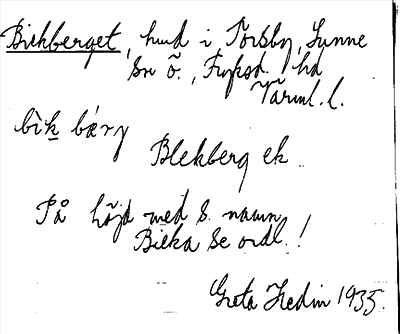 Bickberget, hmd i Torsby, Sunne
sn ö., Fryksd. hd
Värml. l.
bìk bærj
Blekberg ek
På höjd med s. namn.
Bicka se ordl.!
Greta Hedin 1935.